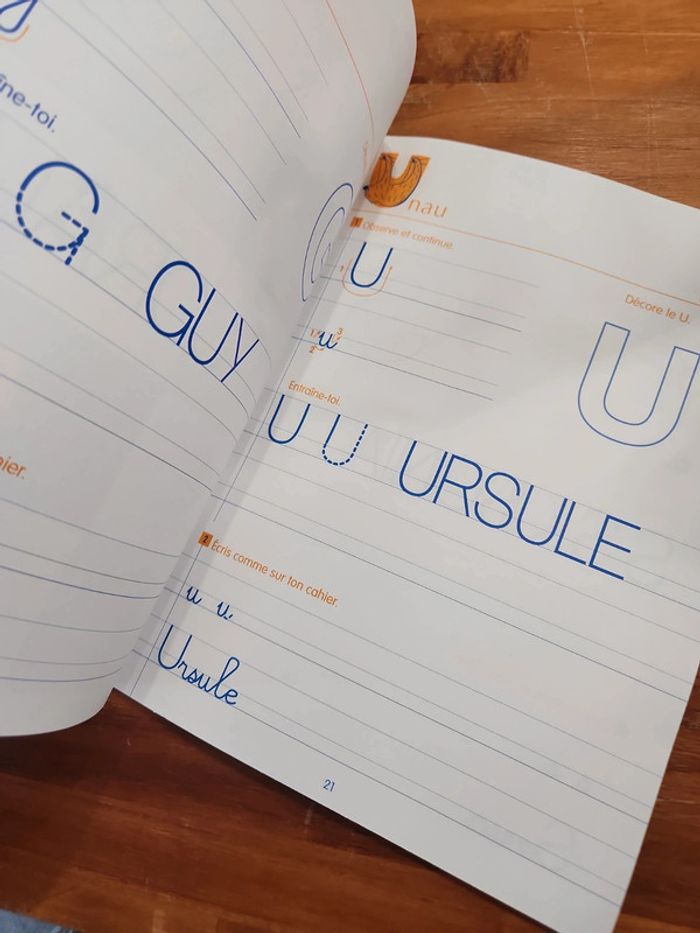 îne-toi.
G
GUY
ier.
Unau
1 Observe et continue.
1 U
Décore le U.
U
1 2 u 3
Entraîne-toi.
U U URSULE
2 Écris comme sur ton cahier.
u u.
Ursule
21